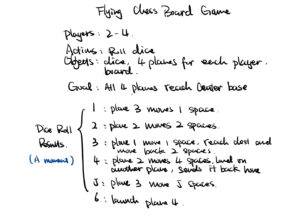 Flying Chess Board Game
Players: 2-4.
Actions: Roll dice
Objects: dice, 4 planes for each player.
board.
Goal: All 4 planes reach center base
1: plane 3 moves 1 space.
2: plane 2 moves 2 spaces.
Dice Roll
Results.
(A moment)
3: plane 1 move 1 space, reach dest and
move back 2 spaces.
4: plane 2 moves 4 spaces, land on
another plane, sends it back home
5: plane 3 move 5 spaces.
6: launch plane 4.